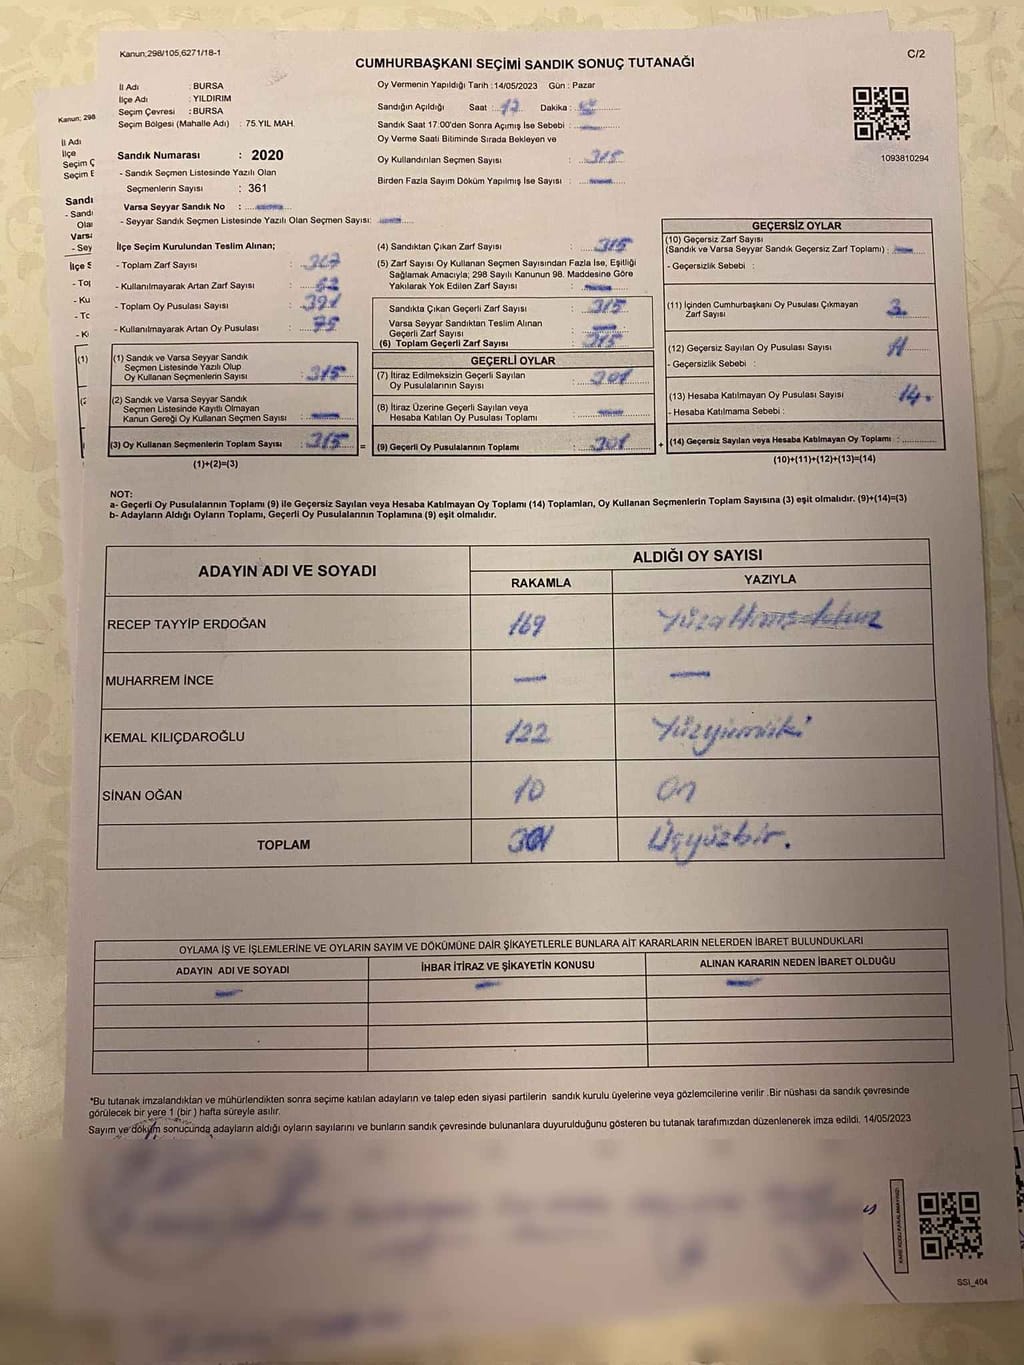 Kanun;298/105,6271/18-1
C/2
CUMHURBAŞKANI SEÇİMİ SANDIK SONUÇ TUTANAĞI
İl Adı : BURSA
İlçe Adı : YILDIRIM
Seçim Çevresi : BURSA
Seçim Bölgesi (Mahalle Adı) : 75.YIL MAH.
Sandık Numarası : 2020
- Sandık Seçmen Listesinde Yazılı Olan
Seçmenlerin Sayısı : 361
Varsa Seyyar Sandık No :
- Seyyar Sandık Seçmen Listesinde Yazılı Olan Seçmen Sayısı:
Oy Vermenin Yapıldığı Tarih :14/05/2023 Gün : Pazar
Sandığın Açıldığı Saat : 17 Dakika :
Sandık Saat 17:00'den Sonra Açımış İse Sebebi :
Oy Verme Saati Bitiminde Sırada Bekleyen ve
Oy Kullandırılan Seçmen Sayısı : 315
Birden Fazla Sayım Döküm Yapılmış İse Sayısı :
1093810294
İlçe Seçim Kurulundan Teslim Alınan;
- Toplam Zarf Sayısı :
- Kullanılmayarak Artan Zarf Sayısı :
- Toplam Oy Pusulası Sayısı :
- Kullanılmayarak Artan Oy Pusulası : 75
(1) Sandık ve Varsa Seyyar Sandık
Seçmen Listesinde Yazılı Olup
Oy Kullanan Seçmenlerin Sayısı : 315
(2) Sandık ve Varsa Seyyar Sandık
Seçmen Listesinde Kayıtlı Olmayan
Kanun Gereği Oy Kullanan Seçmen Sayısı :
(3) Oy Kullanan Seçmenlerin Toplam Sayısı : 315
(1)+(2)=(3)
=
(4) Sandıktan Çıkan Zarf Sayısı : 315
(5) Zarf Sayısı Oy Kullanan Seçmen Sayısından Fazla İse, Eşitliği
Sağlamak Amacıyla; 298 Sayılı Kanunun 98. Maddesine Göre
Yakılarak Yok Edilen Zarf Sayısı :
Sandıkta Çıkan Geçerli Zarf Sayısı : 315
Varsa Seyyar Sandıktan Teslim Alınan
Geçerli Zarf Sayısı :
(6) Toplam Geçerli Zarf Sayısı : 315
GEÇERLİ OYLAR
(7) İtiraz Edilmeksizin Geçerli Sayılan
Oy Pusulalarının Sayısı : 301
(8) İtiraz Üzerine Geçerli Sayılan veya
Hesaba Katılan Oy Pusulası Toplamı :
(9) Geçerli Oy Pusulalarının Toplamı : 301
+
GEÇERSİZ OYLAR
(10) Geçersiz Zarf Sayısı
(Sandık ve Varsa Seyyar Sandık Geçersiz Zarf Toplamı) :
- Geçersizlik Sebebi :
(11) İçinden Cumhurbaşkanı Oy Pusulası Çıkmayan
Zarf Sayısı : 3
(12) Geçersiz Sayılan Oy Pusulası Sayısı : 11
- Geçersizlik Sebebi :
(13) Hesaba Katılmayan Oy Pusulası Sayısı : 14.
- Hesaba Katılmama Sebebi :
(14) Geçersiz Sayılan veya Hesaba Katılmayan Oy Toplamı :
(10)+(11)+(12)+(13)=(14)
NOT:
a- Geçerli Oy Pusulalarının Toplamı (9) ile Geçersiz Sayılan veya Hesaba Katılmayan Oy Toplamı (14) Toplamları, Oy Kullanan Seçmenlerin Toplam Sayısına (3) eşit olmalıdır. (9)+(14)=(3)
b- Adayların Aldığı Oyların Toplamı, Geçerli Oy Pusulalarının Toplamına (9) eşit olmalıdır.
ADAYIN ADI VE SOYADI
ALDIĞI OY SAYISI
RAKAMLA YAZIYLA
RECEP TAYYİP ERDOĞAN 169
MUHARREM İNCE — —
KEMAL KILIÇDAROĞLU 122 Yüzyirmiiki
SİNAN OĞAN 10 On
TOPLAM 301 Üçyüzbir.
OYLAMA İŞ VE İŞLEMLERİNE VE OYLARIN SAYIM VE DÖKÜMÜNE DAİR ŞİKAYETLERLE BUNLARA AİT KARARLARIN NELERDEN İBARET BULUNDUKLARI
ADAYIN ADI VE SOYADI İHBAR İTİRAZ VE ŞİKAYETİN KONUSU ALINAN KARARIN NEDEN İBARET OLDUĞU
*Bu tutanak imzalandıktan ve mühürlendikten sonra seçime katılan adayların ve talep eden siyasi partilerin sandık kurulu üyelerine veya gözlemcilerine verilir .Bir nüshası da sandık çevresinde
görülecek bir yere 1 (bir ) hafta süreyle asılır.
Sayım ve döküm sonucunda adayların aldığı oyların sayılarını ve bunların sandık çevresinde bulunanlara duyurulduğunu gösteren bu tutanak tarafımızdan düzenlenerek imza edildi. 14/05/2023
SSI_404